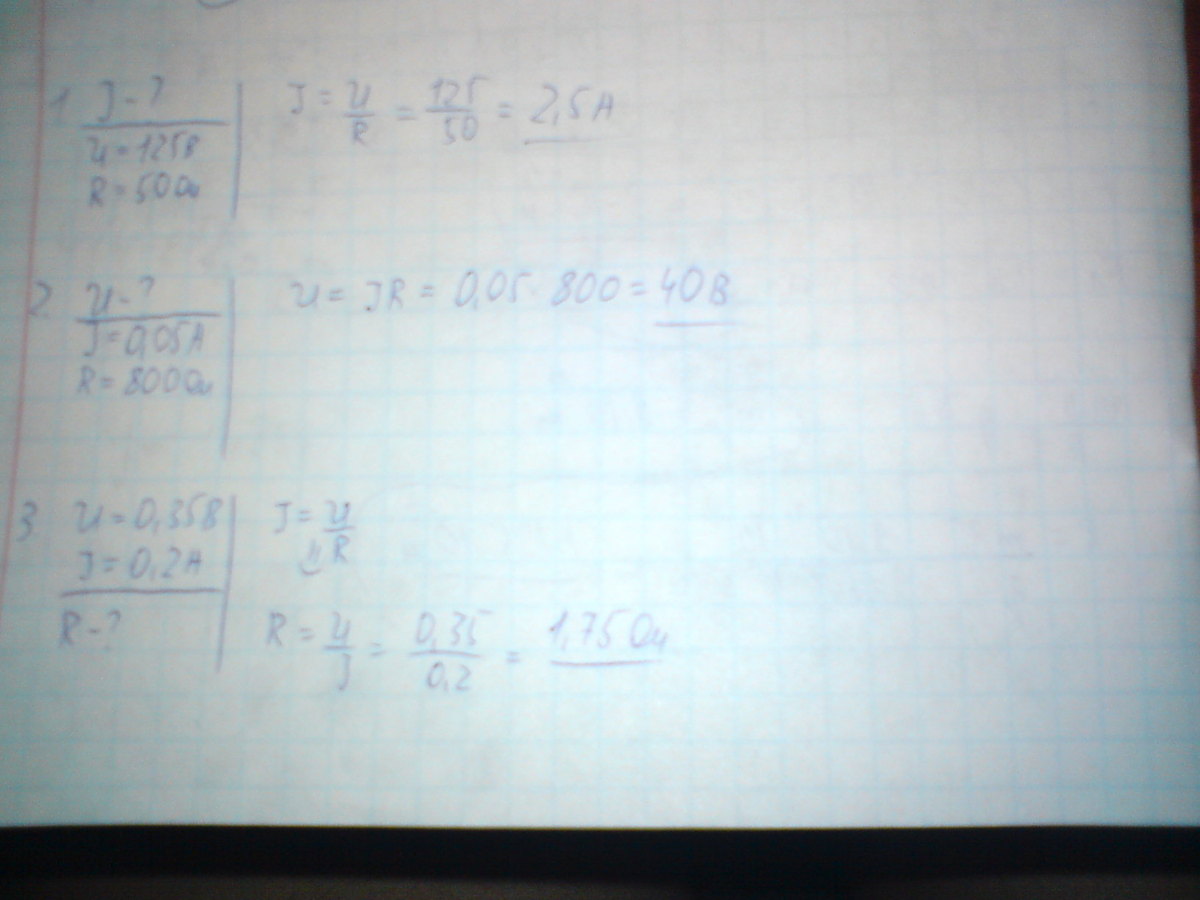 1 J - ?
U = 125В
R = 50Ом
J = U/R = 125/50 = 2,5А
2. U - ?
J = 0,05А
R = 800Ом
U = JR = 0,05 · 800 = 40В
3. U = 0,35В
J = 0,2А
R - ?
J = U/R
R = U/J = 0,35/0,2 = 1,75Ом